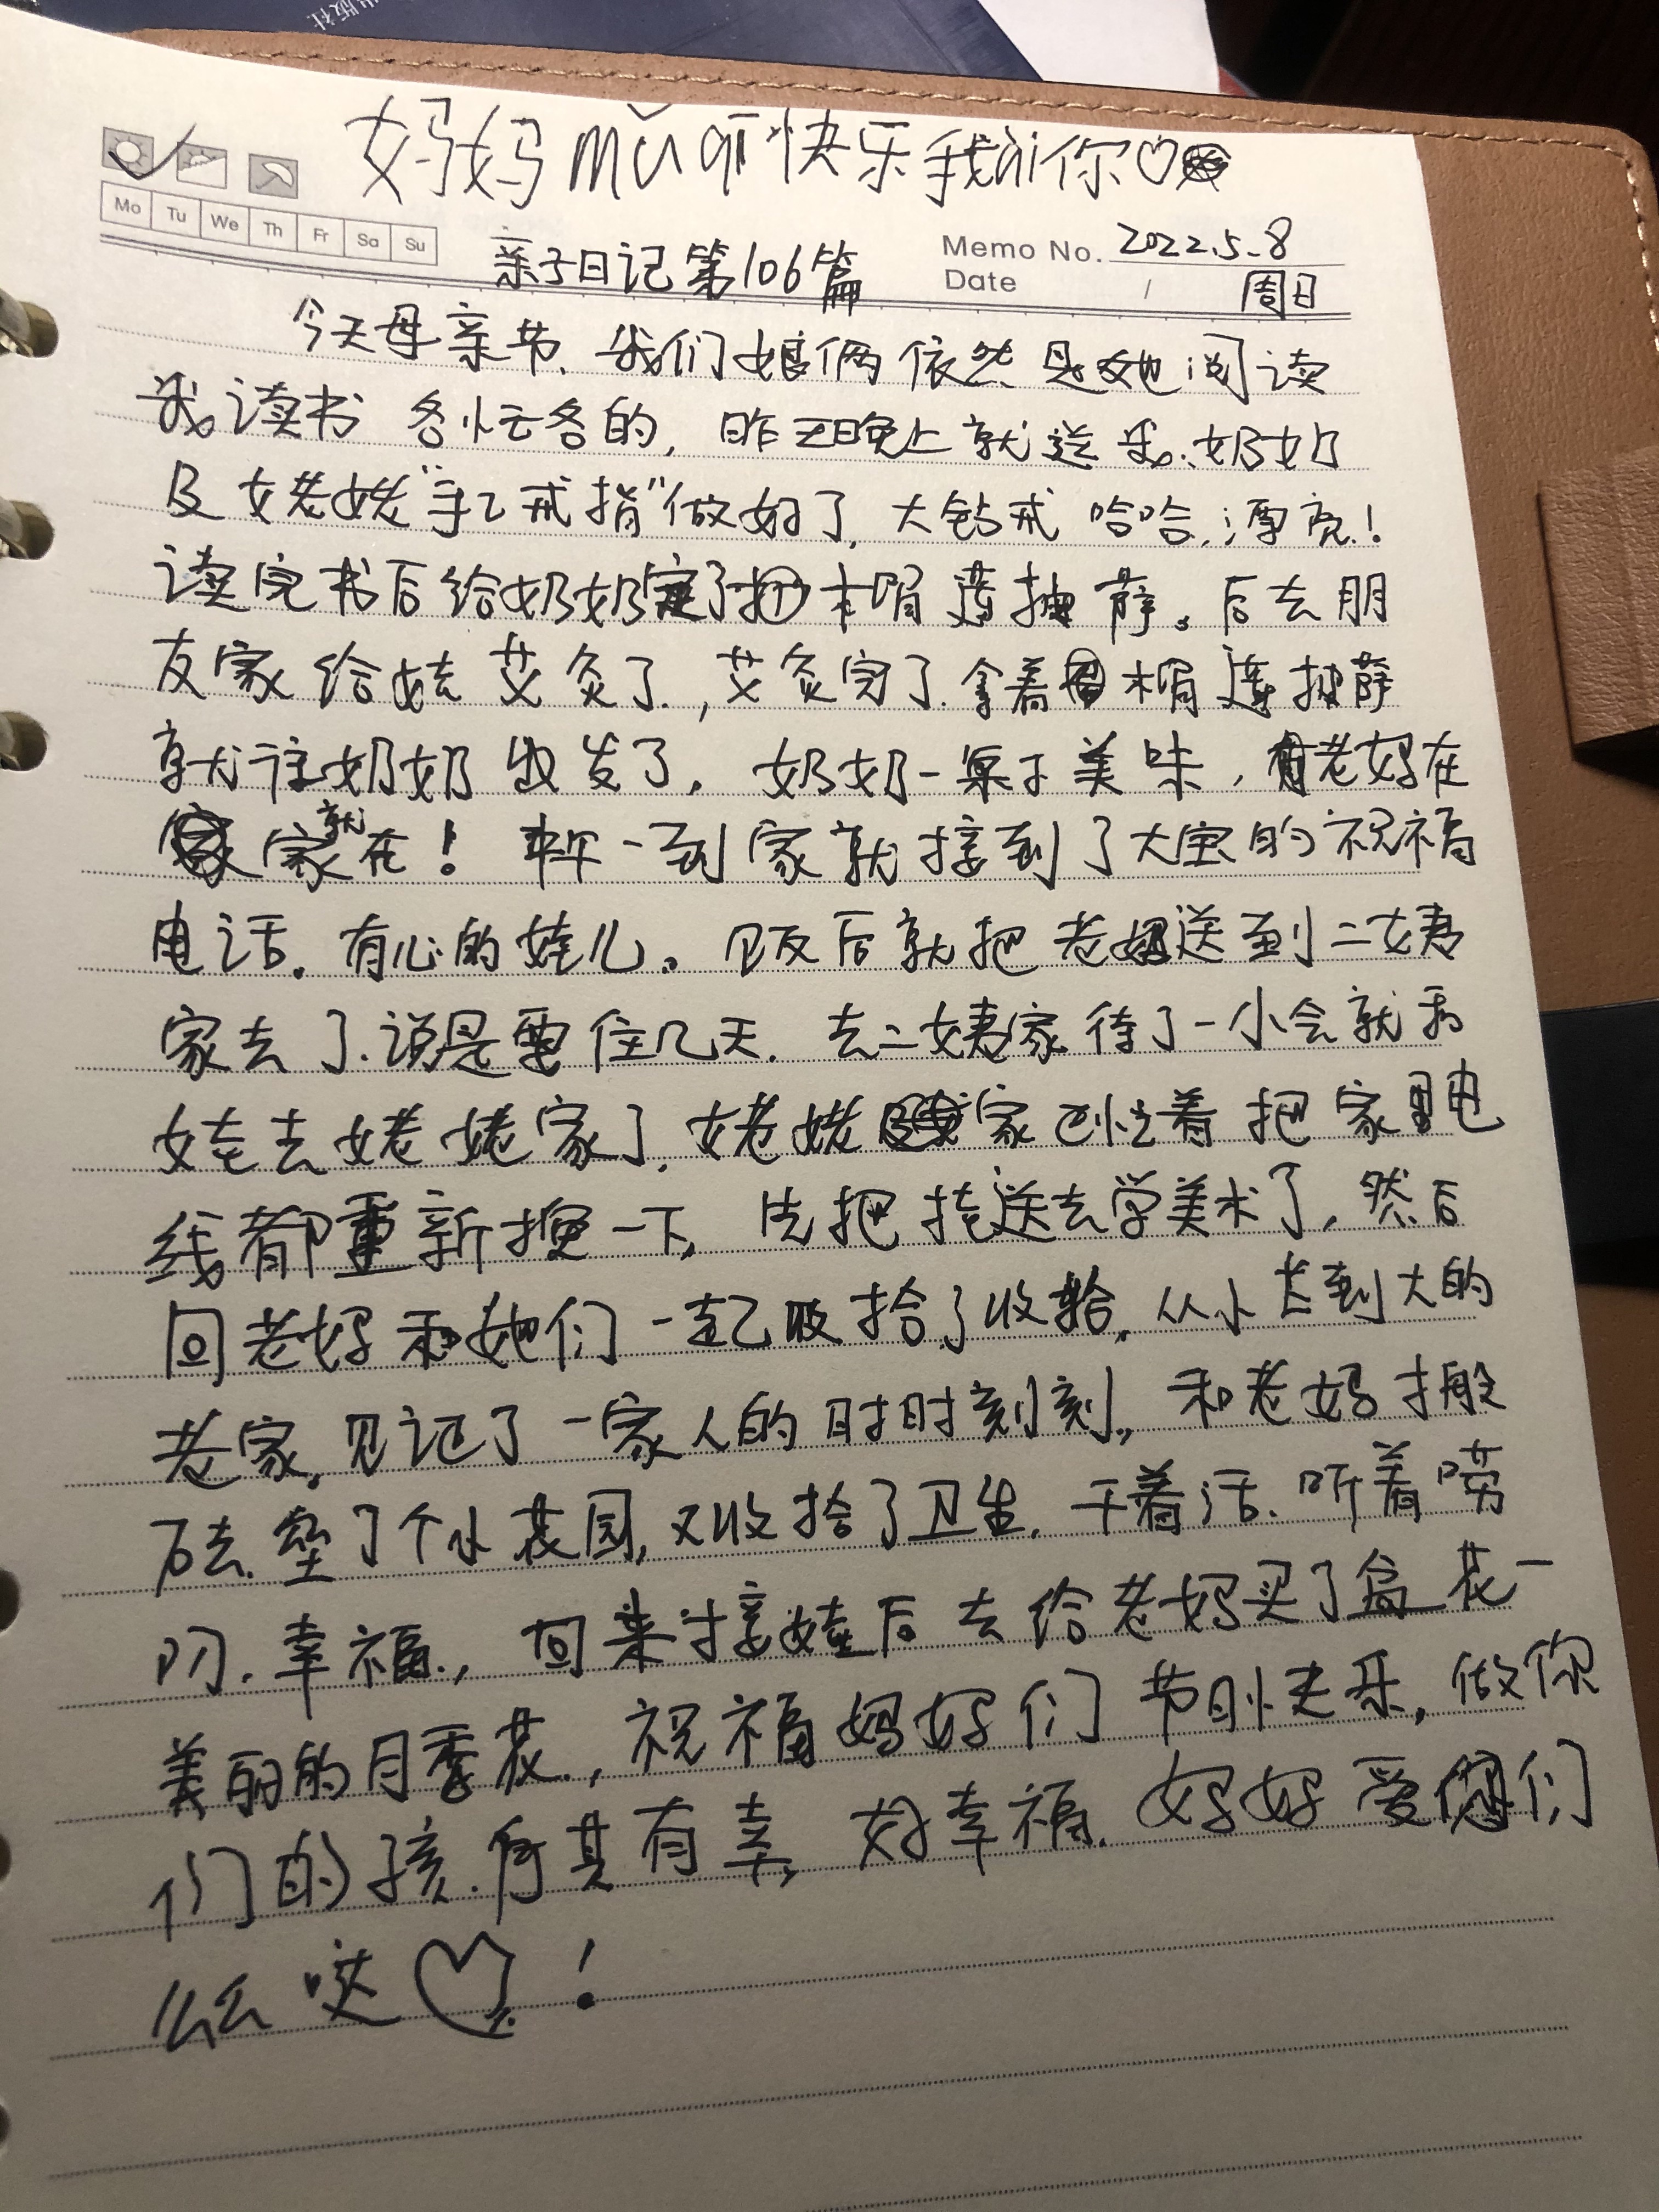 出版社
妈妈mǔ qī快乐我ài你♡
Mo Tu We Th Fr Sa Su
Memo No. 2022.5.8
亲子日记第106篇
Date / 周日
今天母亲节,我们娘俩依然是她阅读
我读书 各忙各的,昨天晚上就送我、奶奶
及姥姥"手工戒指"做好了,大钻戒 哈哈,漂亮!
读完书后给奶奶定了 榴莲披萨。后去朋
友家给娃艾灸了,艾灸完了拿着榴莲披萨
就往奶奶出发了。奶奶一桌子美味,有老妈在
家就在!一到家就接到了大宝的祝福
电话。有心的娃儿。饭后就把老妈送到二姨
家去了.说是要住几天.去二姨家待了一小会就和
娃去姥姥家了.姥姥家忙着把家里电
线都重新换一下,先把娃送去学美术了,然后
回老妈和她们一起收拾了收拾,从小长到大的
老家,见记了一家人的时时刻刻,和老妈搬
石头.垒了个小花园,又收拾了卫生,干着活.听着唠
叨.幸福.,回来接娃后去给老妈买了盆花一
美丽的月季花.,祝福妈妈们节日快乐,做你
们的孩.何其有幸,好幸福.妈妈爱你们
么么哒♡!